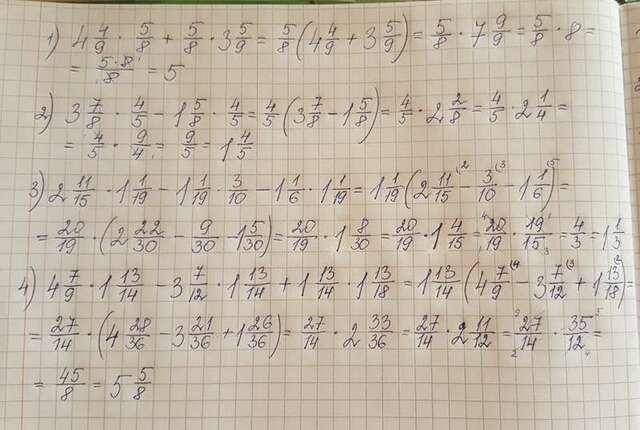 1) 4 4/9 · 5/8 + 5/8 · 3 5/9 = 5/8 (4 4/9 + 3 5/9) = 5/8 · 7 9/9 = 5/8 · 8 =
= 5·8/8 = 5
2) 3 7/8 · 4/5 - 1 5/8 · 4/5 = 4/5 (3 7/8 - 1 5/8) = 4/5 · 2 2/8 = 4/5 · 2 1/4 =
= 4/5 · 9/4 = 9/5 = 1 4/5
3) 2 11/15 · 1 1/19 - 1 1/19 · 3/10 - 1 1/6 · 1 1/19 = 1 1/19 (2 11/15 (2 - 3/10 (3 - 1 1/6 (5) =
= 20/19 · (2 22/30 - 9/30 - 1 5/30) = 20/19 · 1 8/30 = 20/19 · 1 4/15 = 4 20/19 · 19 1/15 3 = 4/3 = 1 1/3
4) 4 7/9 · 1 13/14 - 3 7/12 · 1 13/14 + 1 13/14 · 1 13/18 = 1 13/14 (4 7/9 (4 - 3 7/12 (3 + 1 13/18 (2) =
= 27/14 · (4 28/36 - 3 21/36 + 1 26/36) = 27/14 · 2 33/36 = 27/14 · 2 11/12 = 27/14 2 · 35 5/12 4 =
= 45/8 = 5 5/8